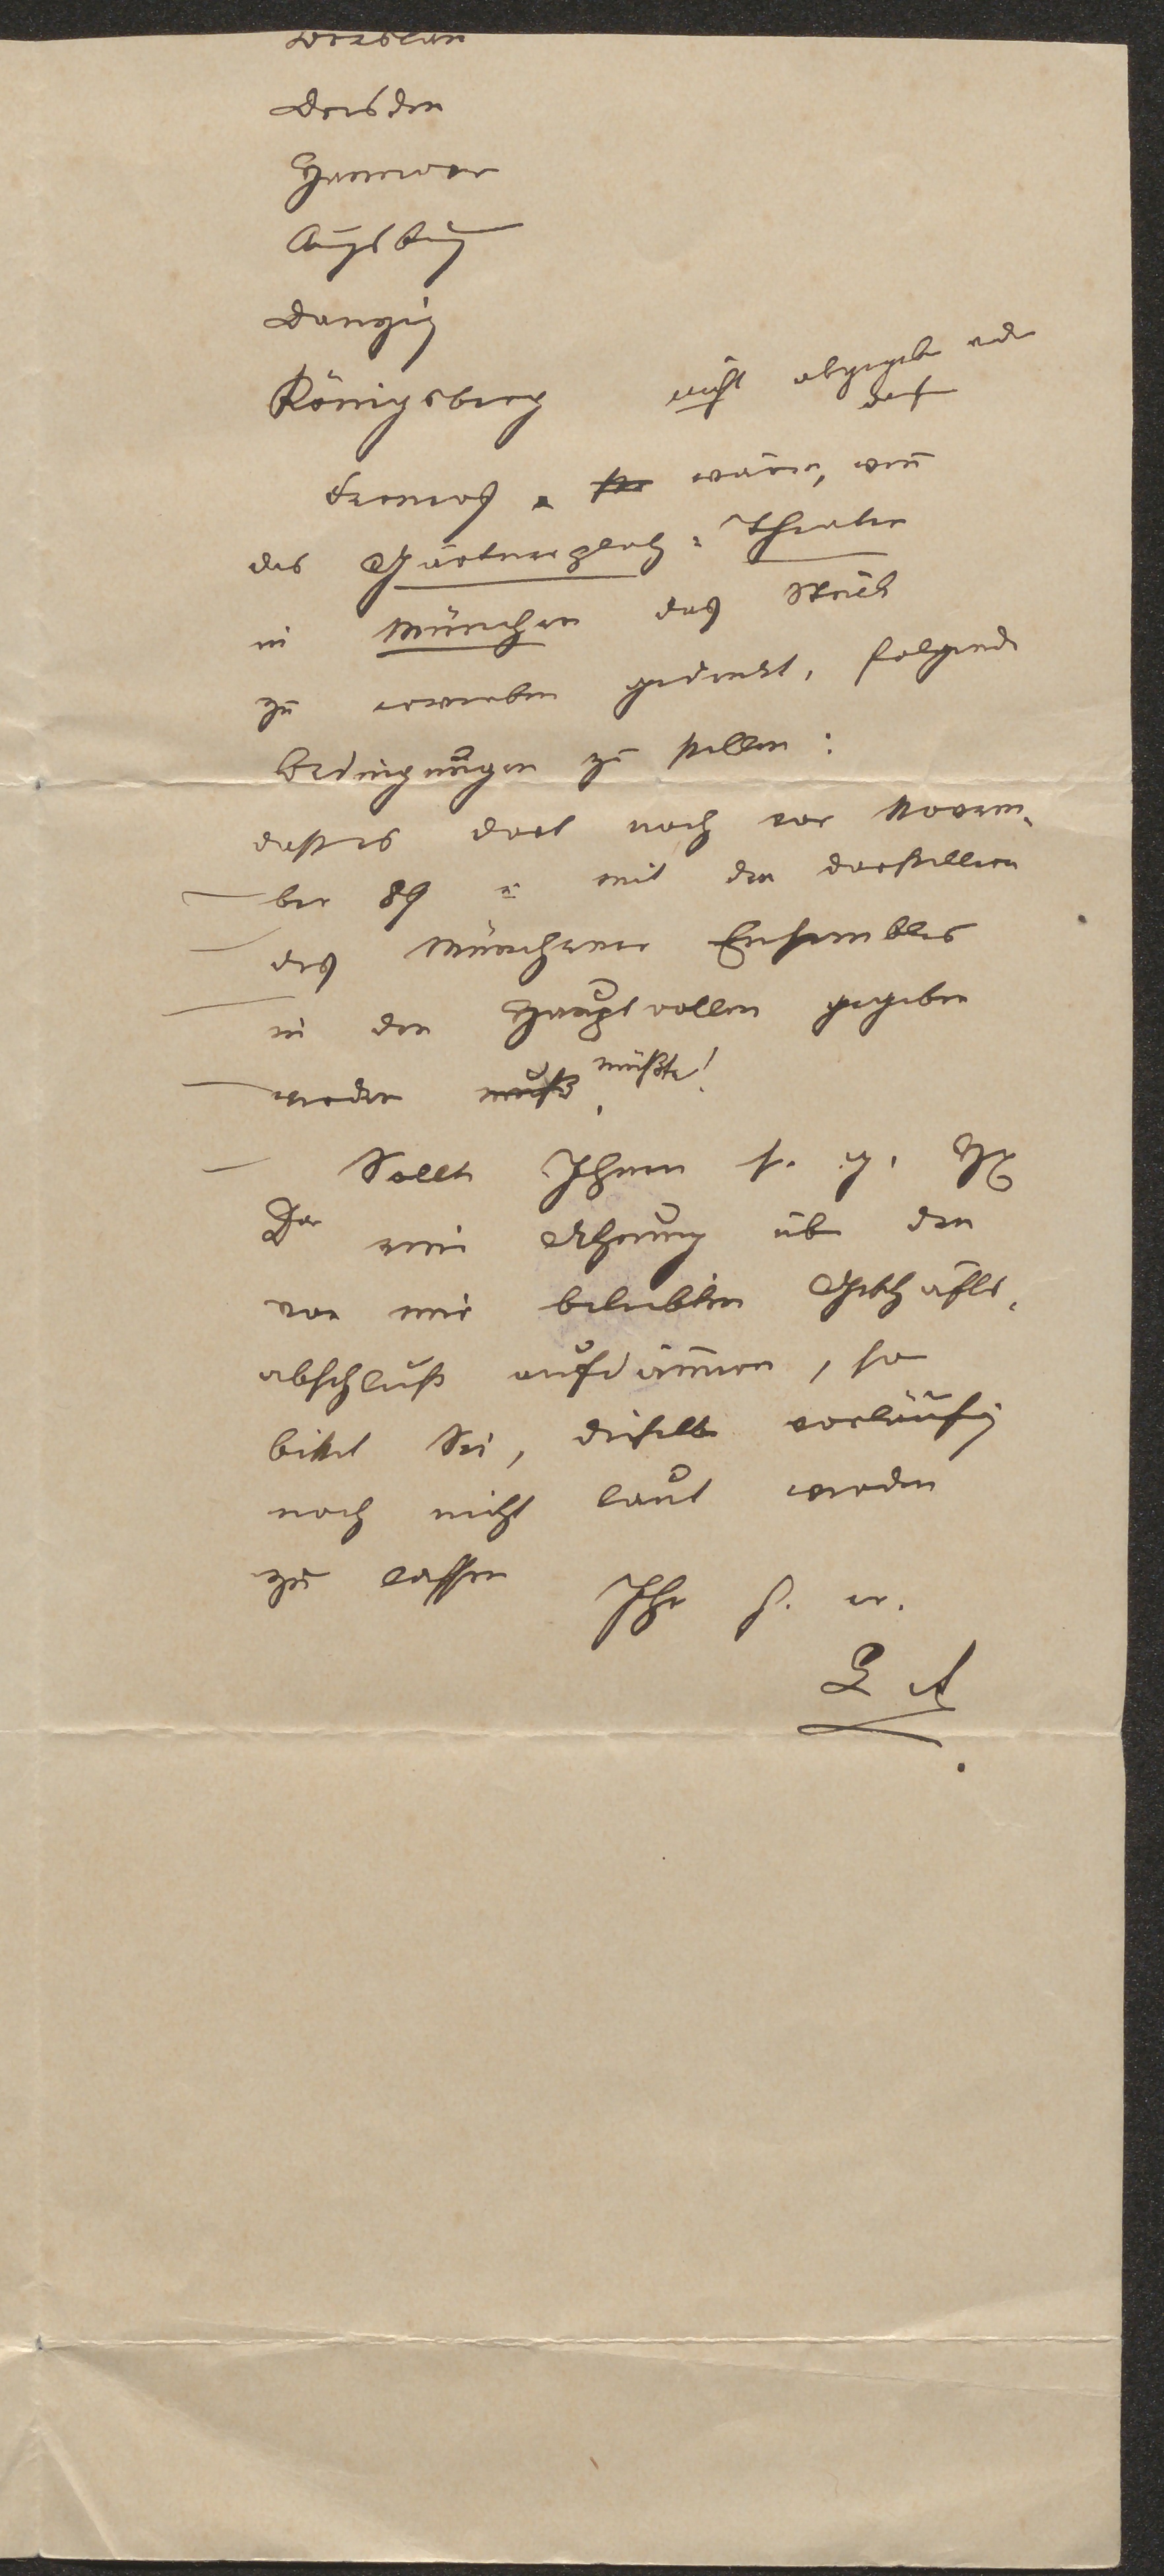 Breslau
Dresden
Hannover
Augsburg
Danzig
Königsberg nicht abgegeben werden
darf
Demnach wären, wenn
das Gärtnerplatz-Theater
in München das Stück
zu erwerben gedenkt, folgende
Bedingungen zu stellen:
daß es dort noch vor Novem-
ber 89 u mit den Darstellern
des Münchener Ensembles
in den Hauptrollen gegeben
werden muß, müßte!
Sollte Ihnen s. g. H
Dor eine Ahnung über den
von mir beliebten Geschäfts-
abschluß aufdämmern, so
bittet Sie, dieselbe vorläufig
noch nicht laut werden
zu lassen
Ihr s. er.
L A